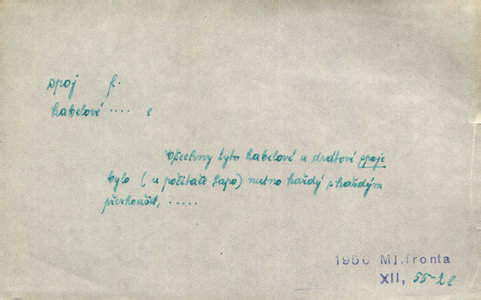 spoj f.
kabelové .... e
Všechny tyto kabelové a drátové spoje
bylo (u počítače Sapo) nutno každý s každým
přezkoušet, .....
1956 Ml.fronta
XII, 55-2e